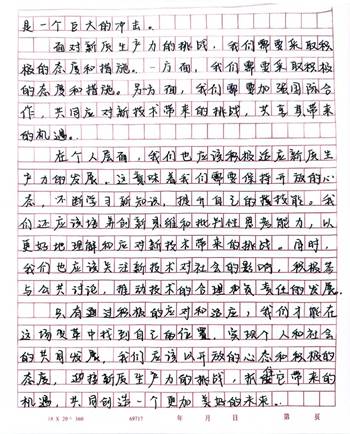 是一个巨大的冲击。
面对新质生产力的挑战，我们需要采取积
极的态度和措施。一方面，我们需要采取积极
的态度和措施。另方面，我们需要加强国际合
作，共同应对新技术带来的挑战，共享其带来
的机遇。
在个人层面，我们也应该积极适应新质生
产力的发展。这意味着我们需要保持开放的心
态，不断学习新知识，提升自己的技能。我
们还应该培养创新思维和批判性思考能力，以
更好地理解和应对新技术带来的挑战。同时，
我们也应该关注新技术对社会的影响，积极参
与公共讨论，推动技术的合理和负责任的发展。
只有通过积极的应对和适应，我们才能在
这场变革中找到自己的位置，实现个人和社会
的共同发展。我们应该以开放的心态和积极的
态度，迎接新质生产力的挑战，抓住它带来的
机遇，共同创造一个更加美好的未来。
18 X 20 = 360 69717 年 月 日 第 页